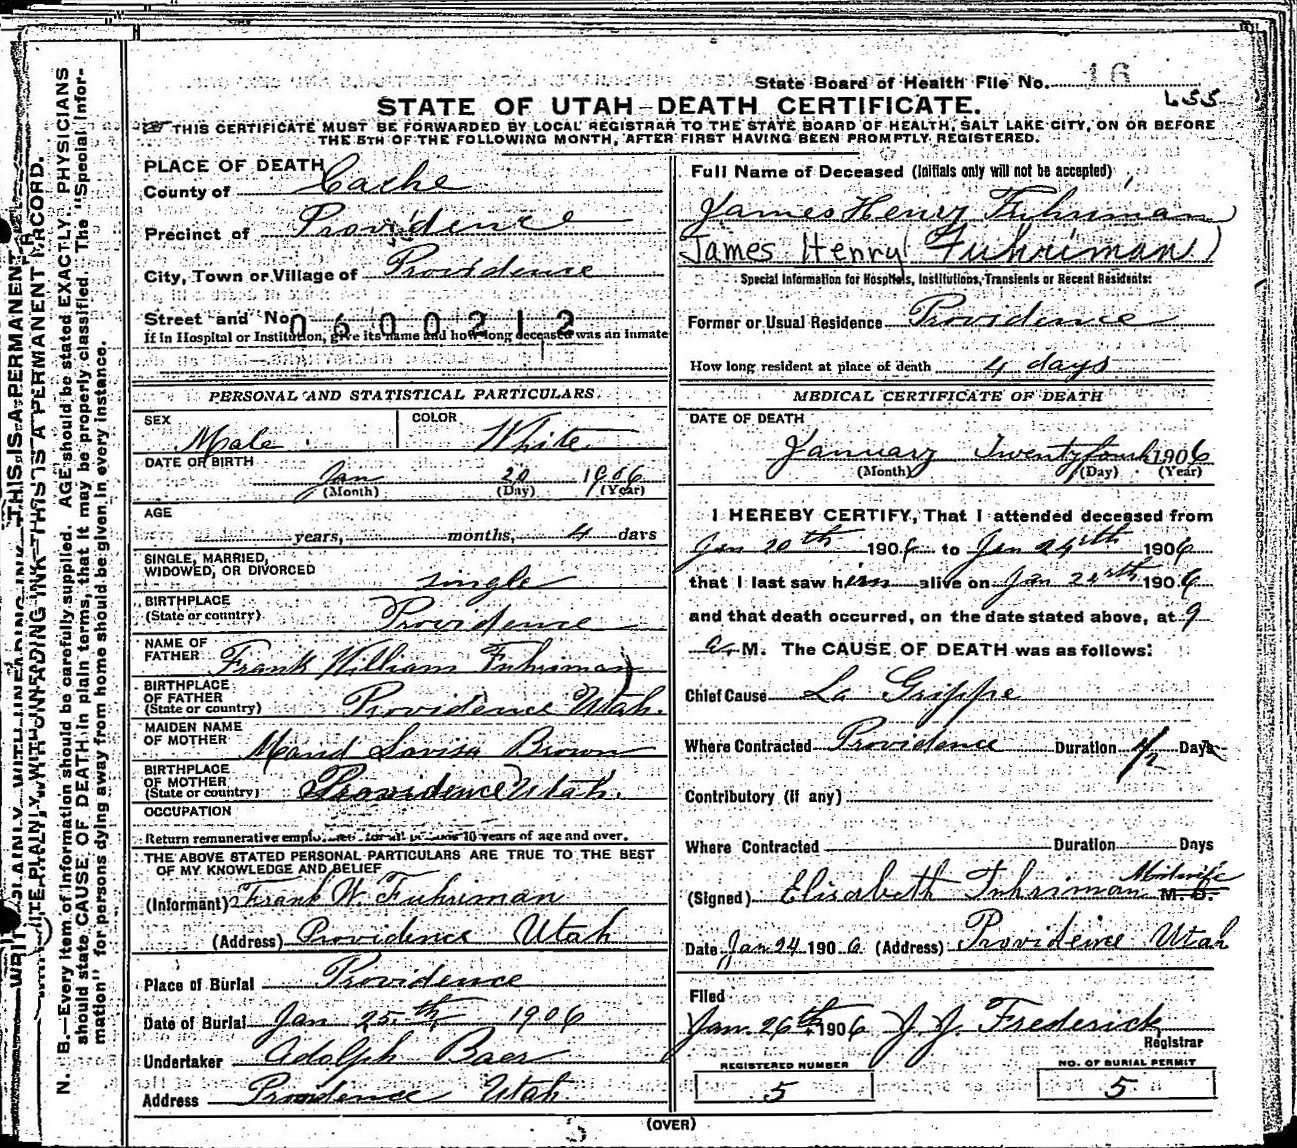 State Board of Health File No. 16
455
STATE OF UTAH—DEATH CERTIFICATE.
THIS CERTIFICATE MUST BE FORWARDED BY LOCAL REGISTRAR TO THE STATE BOARD OF HEALTH, SALT LAKE CITY, ON OR BEFORE
THE 5TH OF THE FOLLOWING MONTH, AFTER FIRST HAVING BEEN PROMPTLY REGISTERED.
PLACE OF DEATH
County of Cache
Precinct of Providence
City, Town or Village of Providence
Street and No.
0600212
If in Hospital or Institution, give its name and how long deceased was an inmate
PERSONAL AND STATISTICAL PARTICULARS
SEX Male COLOR White
DATE OF BIRTH Jan 20 1906
(Month) (Day) (Year)
AGE
years, months, 4 days
SINGLE, MARRIED,
WIDOWED, OR DIVORCED single
BIRTHPLACE
(State or country) Providence
NAME OF
FATHER Frank William Fuhriman
BIRTHPLACE
OF FATHER
(State or country) Providence Utah.
MAIDEN NAME
OF MOTHER Maud Lavisa Brown
BIRTHPLACE
OF MOTHER
(State or country) Providence Utah.
OCCUPATION
Return remunerative employment for all persons 10 years of age and over.
THE ABOVE STATED PERSONAL PARTICULARS ARE TRUE TO THE BEST
OF MY KNOWLEDGE AND BELIEF
(Informant) Frank W. Fuhriman
(Address) Providence Utah
Place of Burial Providence
Date of Burial Jan 25th 1906
Undertaker Adolph Baer
Address Providence Utah
Full Name of Deceased (Initials only will not be accepted)
James Henry Fuhriman
James Henry Fuhriman)
Special Information for Hospitals, Institutions, Transients or Recent Residents:
Former or Usual Residence Providence
How long resident at place of death 4 days
MEDICAL CERTIFICATE OF DEATH
DATE OF DEATH
January Twentyfourth 1906
(Month) (Day) (Year)
I HEREBY CERTIFY, That I attended deceased from
Jan 20th 1906 to Jan 24th 1906
that I last saw him alive on Jan 1906
and that death occurred, on the date stated above, at 9
a. M. The CAUSE OF DEATH was as follows:
Chief Cause La Grippe
Where Contracted Providence Duration 1/2 Days
Contributory (if any)
Where Contracted Duration Days
(Signed) Elisabeth Fuhriman Midwife M. D.
Date Jan 24 1906 (Address) Providence Utah
Filed
Jan. 26th 1906 J. J. Frederick
Registrar
REGISTERED NUMBER
5
NO. OF BURIAL PERMIT
5
(OVER)
WRITE PLAINLY WITH UNFADING INK—THIS IS A PERMANENT RECORD.
N. B.—Every item of information should be carefully supplied. AGE should be stated EXACTLY. PHYSICIANS
should state CAUSE OF DEATH in plain terms, that it may be properly classified. The "Special Infor-
mation" for persons dying away from home should be given in every instance.